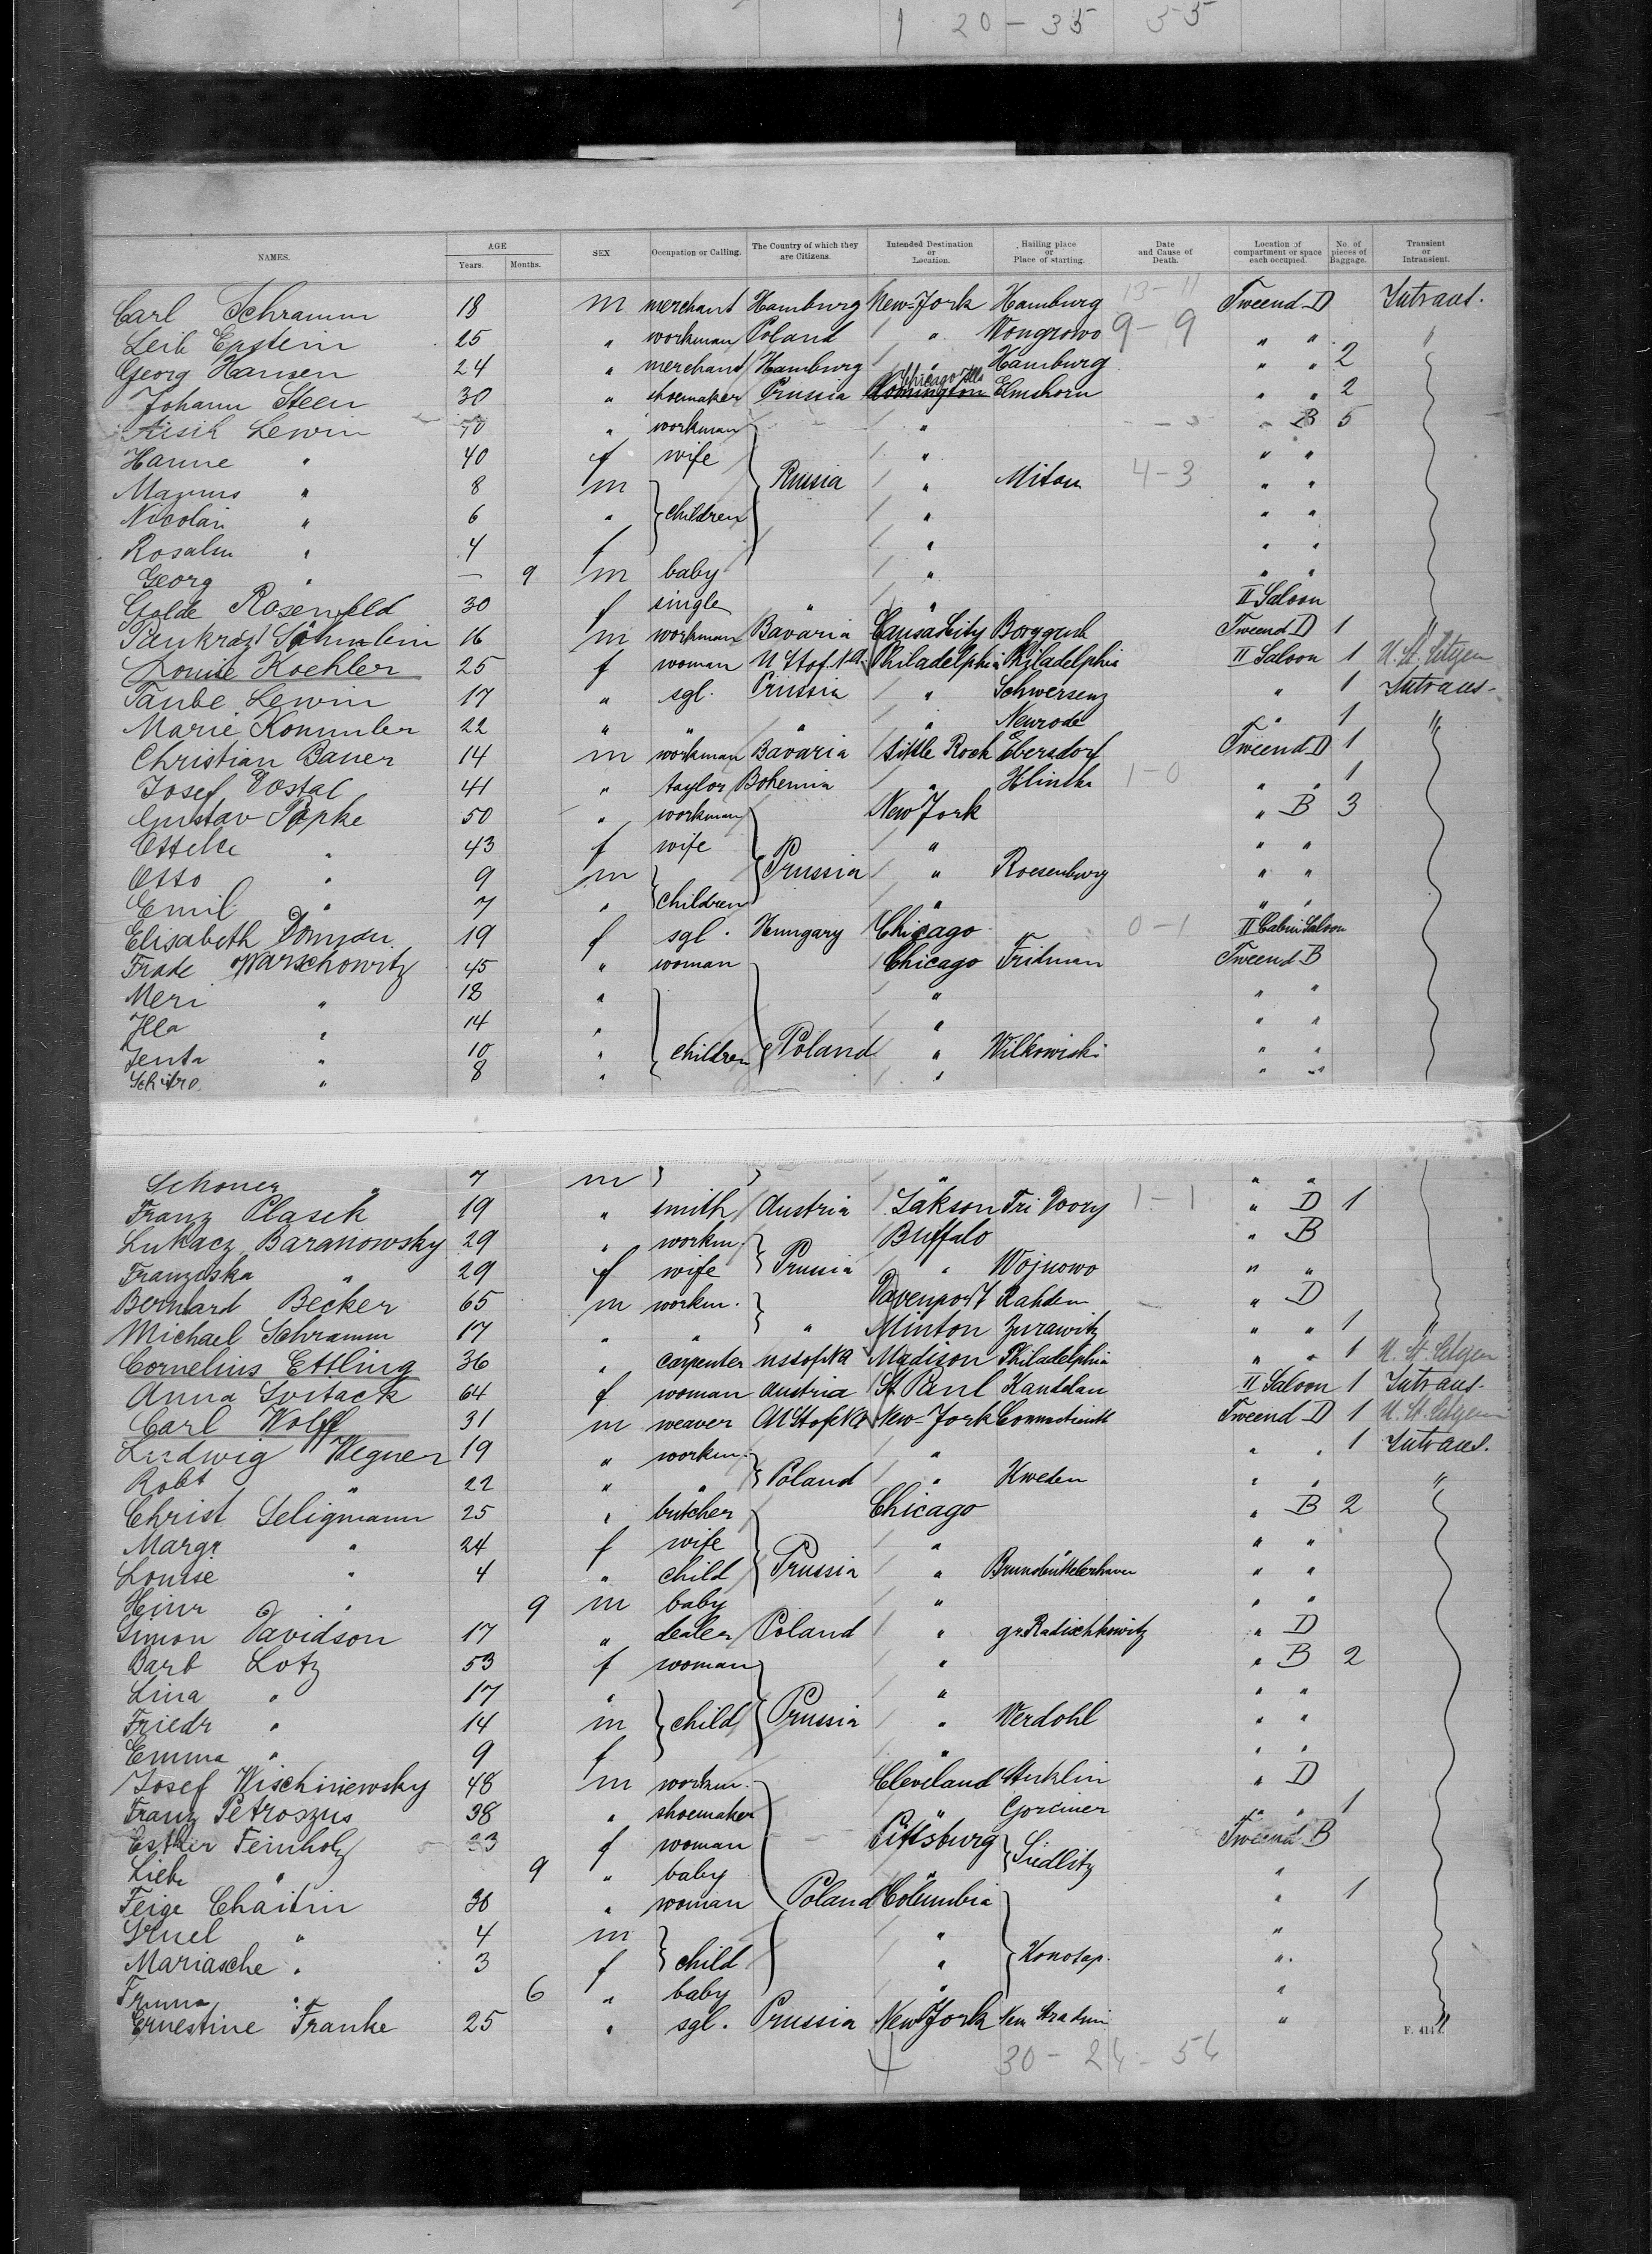 1 20 - 35 55
NAMES. AGE Years. Months. SEX Occupation or Calling. The Country of which they are Citizens. Intended Destination or Location. Hailing place or Place of starting. Date and Cause of Death. Location of compartment or space each occupied. No. of pieces of Baggage. Transient or Intransient.
Carl Schramm 18 m merchant Hamburg New-York Hamburg 13-11 Tweend-D Intrans.
Leib Epstein 25 " workman Poland " Wongrowo 9-9 " " "
Georg Hansen 24 " merchant Hamburg " Hamburg " " 2
Johann Steen 30 " shoemaker Prussia Chicago Ills Elmshorn " " 2
Aisik Lewin " workman " " B 5
Hanne " 40 f wife " " "
Magnus " 8 m Russia " Mitau 4-3 " "
Nicolai " 6 " children " " "
Rosalin " 4 f " " "
Georg " — 9 m baby " " "
Golde Rosenfeld 30 f single " " II Saloon
Pankraz Söhnlein 16 m workman Bavaria Cansas City Tweend D 1 "
Louise Koehler 25 f woman U St of NA Philadelphia Philadelphia II Saloon 1 U. St. Citzen
Taube Lewin 17 " sgl. Prussia " Schwersenz " 1 Intrans-
Marie Kommler 22 " " " " Neurode " 1 "
Christian Bauer 14 m workman Bavaria Little Rock Ebersdorf Tweend D 1
Josef Dostal 41 " taylor Bohemia " Hlinska 1-0 " " 1
Gustav Papke 50 " workman New York " B 3
Ottilie " 43 f wife " " "
Otto " 9 m Prussia " Roesenburg " "
Emil " 7 " children " " "
Elisabeth 19 f sgl. Hungary Chicago 0-1 II Cabin Saloon
Frade Warschowitz 45 " woman Chicago Fridman Tweend B
Meri " 18 " " " "
Illa " 14 " " " "
Jenta " 10 " children Poland " Wilkowiski " "
" 8 " " " "
Schoner " 7 m " " "
Franz Plasek 19 " smith Austria Jakson Tri Dvory 1-1 " D 1
Lukacz Baranowsky 29 " workm. Buffalo " B
Franziska " 29 f wife Prussia " Wojnowo " "
Bernhard Becker 65 m workm. Davenport Rahden " D
Michael Schramm 17 " " " Minton Zurawitz " " 1 "
Cornelius Ettling 36 " carpenter USSofNA Madison Philadelphia " " 1 U. St. Citzen
Anna Svitack 64 f woman Austria St Paul II Saloon 1 Intrans-
Carl Wolff 31 m weaver USt of NA New-York Connecticutt Tweend-D 1 U. St. Citzen
Ludwig Wegner 19 " workm. " " " 1 Intrans.
Robt " 22 " " Poland " Kweden " " "
Christ Seligmann 25 " butcher Chicago " B 2
Margr. " 24 f wife " " "
Louise " 4 " child Prussia " Brunsbüttelerhaven " "
Heinr " 9 m baby " " "
Simon Davidson 17 " dealer Poland " gr. Radischkowitz " D
Barb Lotz 53 f woman " " B 2
Lina " 17 " " " "
Friedr " 14 m child Prussia " Werdohl " "
Emma " 9 f " " "
Josef Wischniewsky 48 m workm. Cleveland " D
Franz Petroszus 38 " shoemaker " " " 1
Esther Feinholz 23 f woman Pittsburg Siedlitz Tweend B
Liebe " 9 " baby " "
Feige Chaitin 36 " woman Poland Columbia " 1
" 4 m " "
Mariasche " 3 f child " Konotop. "
" 6 " baby " "
Ernestine Franke 25 " sgl. Prussia New York " "
F. 414
30 - 24 - 54